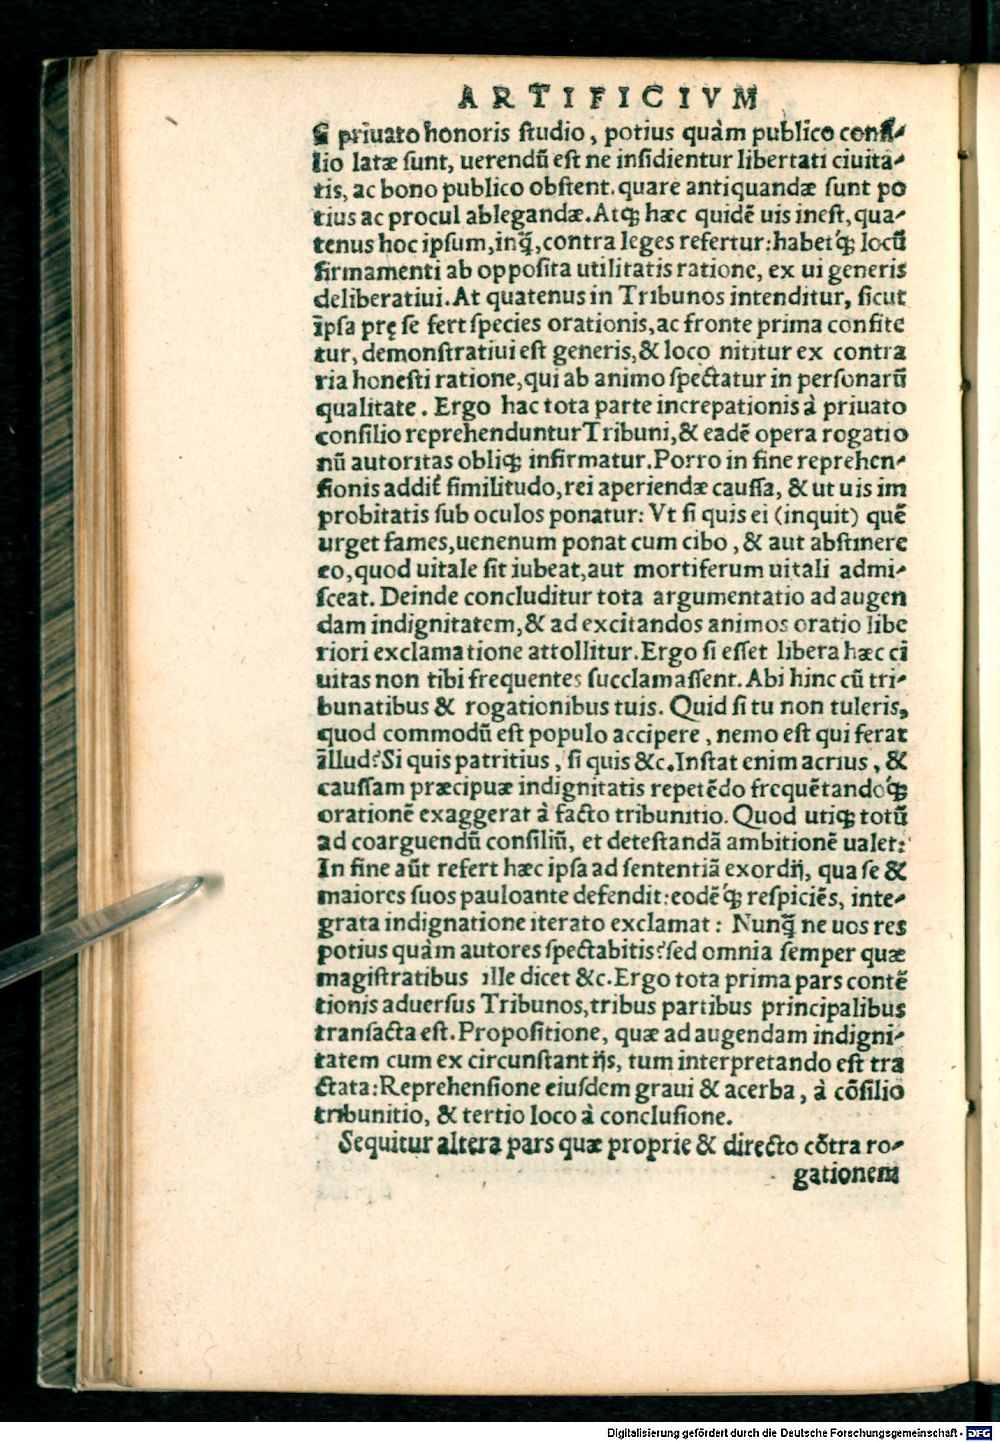 ARTIFICIVM
ſi priuato honoris ſtudio, potius quàm publico conſi-
lio latæ ſunt, uerendũ eſt ne inſidientur libertati ciuita-
tis, ac bono publico obſtent. quare antiquandæ ſunt po
tius ac procul ablegandæ. Atꝗ hæc quidẽ uis ineſt, qua-
tenus hoc ipſum, inꝗ̃, contra leges refertur: habet́ꝗ locũ
firmamenti ab oppoſita utilitatis ratione, ex ui generis
deliberatiui. At quatenus in Tribunos intenditur, ſicut
ĩpſa prę ſe fert ſpecies orationis, ac fronte prima confite
tur, demonſtratiui eſt generis, & loco nititur ex contra
ria honeſti ratione, qui ab animo ſpectatur in perſonarũ
qualitate. Ergo hac tota parte increpationis à priuato
conſilio reprehenduntur Tribuni, & eadẽ opera rogatio
nũ autoritas obliꝗ infirmatur. Porro in fine reprehen-
ſionis addit᷑ ſimilitudo, rei aperiendæ cauſſa, & ut uis im
probitatis ſub oculos ponatur: Vt ſi quis ei (inquit) quẽ
urget fames, uenenum ponat cum cibo, & aut abſtinere
eo, quod uitale ſit iubeat, aut mortiferum uitali admi-
ſceat. Deinde concluditur tota argumentatio ad augen
dam indignitatem, & ad excitandos animos oratio libe
riori exclamatione attollitur. Ergo ſi eſſet libera hæc ci
uitas non tibi frequentes ſucclamaſſent. Abi hinc cũ tri-
bunatibus & rogationibus tuis. Quid ſi tu non tuleris,
quod commodũ eſt populo accipere, nemo eſt qui ferat
ĩllud? Si quis patritius, ſi quis &c. Inſtat enim acrius, &
cauſſam præcipuæ indignitatis repetẽdo frequẽtando´ꝗ
orationẽ exaggerat à facto tribunitio. Quod utiꝗ totũ
ad coarguendũ conſiliũ, et deteſtandã ambitionẽ ualet:
In fine aũt refert hæc ipſa ad ſententiã exordij, qua ſe &
maiores ſuos pauloante defendit: eodẽ´ꝗ reſpiciẽs, inte-
grata indignatione iterato exclamat: Nunꝗ̃ ne uos res
potius quàm autores ſpectabitis? ſed omnia ſemper quæ
magiſtratibus ille dicet &c. Ergo tota prima pars contẽ
tionis aduerſus Tribunos, tribus partibus principalibus
tranſacta eſt. Propoſitione, quæ ad augendam indigni-
tatem cum ex circunſtantijs, tum interpretando eſt tra
ctata: Reprehenſione eiuſdem graui & acerba, à cõſilio
tribunitio, & tertio loco à concluſione.
Sequitur altera pars quæ proprie & directo cõtra ro-
gationem
Digitalisierung gefördert durch die Deutsche Forschungsgemeinschaft - DFG